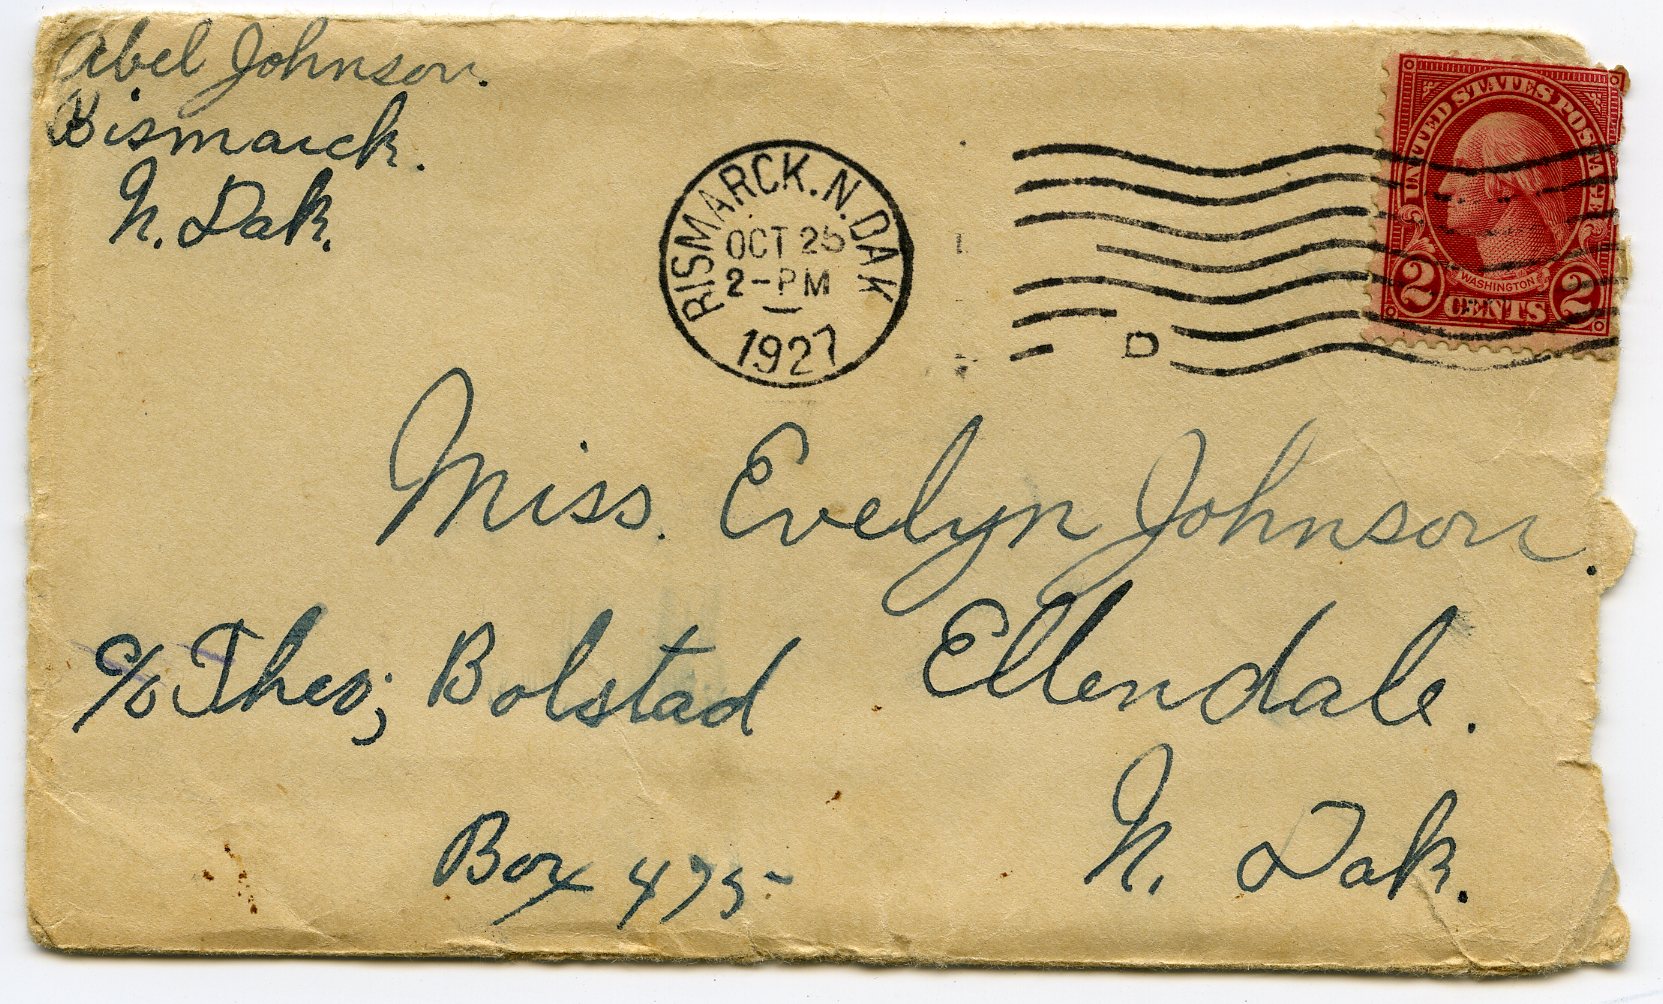 Abel Johnson.
Bismarck.
N. Dak.
BISMARCK. N. DAK
OCT 25
2-PM
1927
D
UNITED STATES POSTAGE
WASHINGTON
2 CENTS 2
Miss. Evelyn Johnson.
c/o Theo; Bolstad Ellendale.
Box 475- N. Dak.